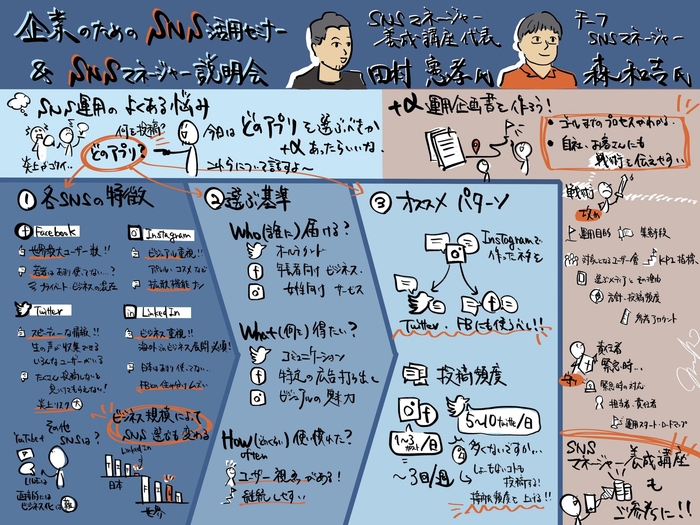 企業のための SNS活用セミナー
& SNSマネージャー説明会
SNSマネージャー
養成講座代表
田村 憲孝氏
チーフ
SNSマネージャー
森 和吉氏
SNS運用のよくある悩み
何を投稿?
どのアプリ?
炎上がコワイ…
今日は どのアプリ を選ぶべきか
+α あったらいいな、
これらについて話すよ〜
+α 運用企画書を作ろう!
ゴールまでのプロセスがわかる
自社・お客さんにも
戦術を伝えやすい
① 各SNSの特徴
Facebook
世界最大ユーザー数!!
若者はあまり使ってない…?
プライベート・ビジネスの混在
Instagram
ビジュアル重視!!
アパレル・コスメなど
拡散機能ナシ
Twitter
スピーディーな情報!!
生の声が収集できる
いろんなユーザーがいる
たくさん投稿しないと
見いてもらえない!
炎上リスク 大
LinkedIn
ビジネス重視!!
海外・ビジネス展開 必須!
日本はあまり使ってない…
FBとの使い分けムズい
その他
SNSは?
YouTube
ビジネス規模によって
SNS選びも変わる
LinkedIn
日本
世界
② 選ぶ基準
Who(誰に)届ける?
オールマイティ
年長者向け ビジネス
女性向け サービス
What(何に)得たい?
コミュニケーション
特定の広告打ち出し
ビジュアルの魅力
How often (どのくらい) 使い慣れた?
ユーザー視点がある!
継続しやすい
③ オススメ パターン
Instagramで
作ったネタを
Twitter・FBにも使うべし!!
投稿頻度
1〜3 ポスト/日
5〜10 tweet/日
〜3日/週
多くないですか…
しょーもないコトも
投稿する!
接触頻度を上げる!!
戦術
攻め
運用目的
集客手段
対象となるユーザー層
KPI 指標
選ぶメディアとその理由
方針・投稿頻度
参考アカウント
守り
責任者
緊急時…
緊急時の対応
担当者・責任者
運用スタート・ロードマップ
SNS
マネージャー養成講座
も
ご参考に!!